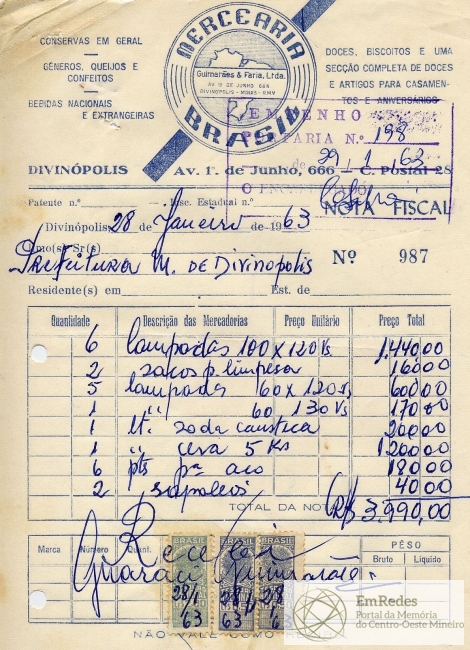 CONSERVAS EM GERAL
GÊNEROS, QUEIJOS E
CONFEITOS
BEBIDAS NACIONAIS
E EXTRANGEIRAS
MERCEARIA
Guimarães & Faria, Ltda.
AV 1º DE JUNHO 666
DIVINÓPOLIS - MINAS - RMV
BRASIL
DOCES, BISCOITOS E UMA
SECÇÃO COMPLETA DE DOCES
E ARTIGOS PARA CASAMEN-
TOS E ANIVERSÁRIOS
EMPENHO
PORTARIA N.º 198
de 29/1/63
DIVINÓPOLIS Av. 1º de Junho, 666 — C. Postal 28
Patente n.º Insc. Estadual n.º
NOTA FISCAL
Divinópolis, 28 de Janeiro de 1963
Ilmo(s) Sr(s)
Prefeitura M. de Divinopolis
Nº 987
Residente(s) em Est. de
Quantidade Descrição das Mercadorias Preço Unitário Preço Total
6 lampadas 100 x 120 Vs 1.440,00
2 sacos p. limpesa 160,00
5 lampadas 60 x 120 Vs 600,00
1 " 60 130 Vs 170,00
1 lt. soda caustica 200,00
1 " cera 5 Ks 1.200,00
6 pts pª aco 180,00
2 sapoleos 40,00
TOTAL DA NOTA CR$ 3.990,00
Marca Número Quant. PÊSO
Bruto Líquido
Recebi
Guimarães
BRASIL BRASIL BRASIL
28/1 28/1 28/1
63 63 63
NÃO VALE COMO
EmRedes
Portal da Memória
do Centro-Oeste Mineiro